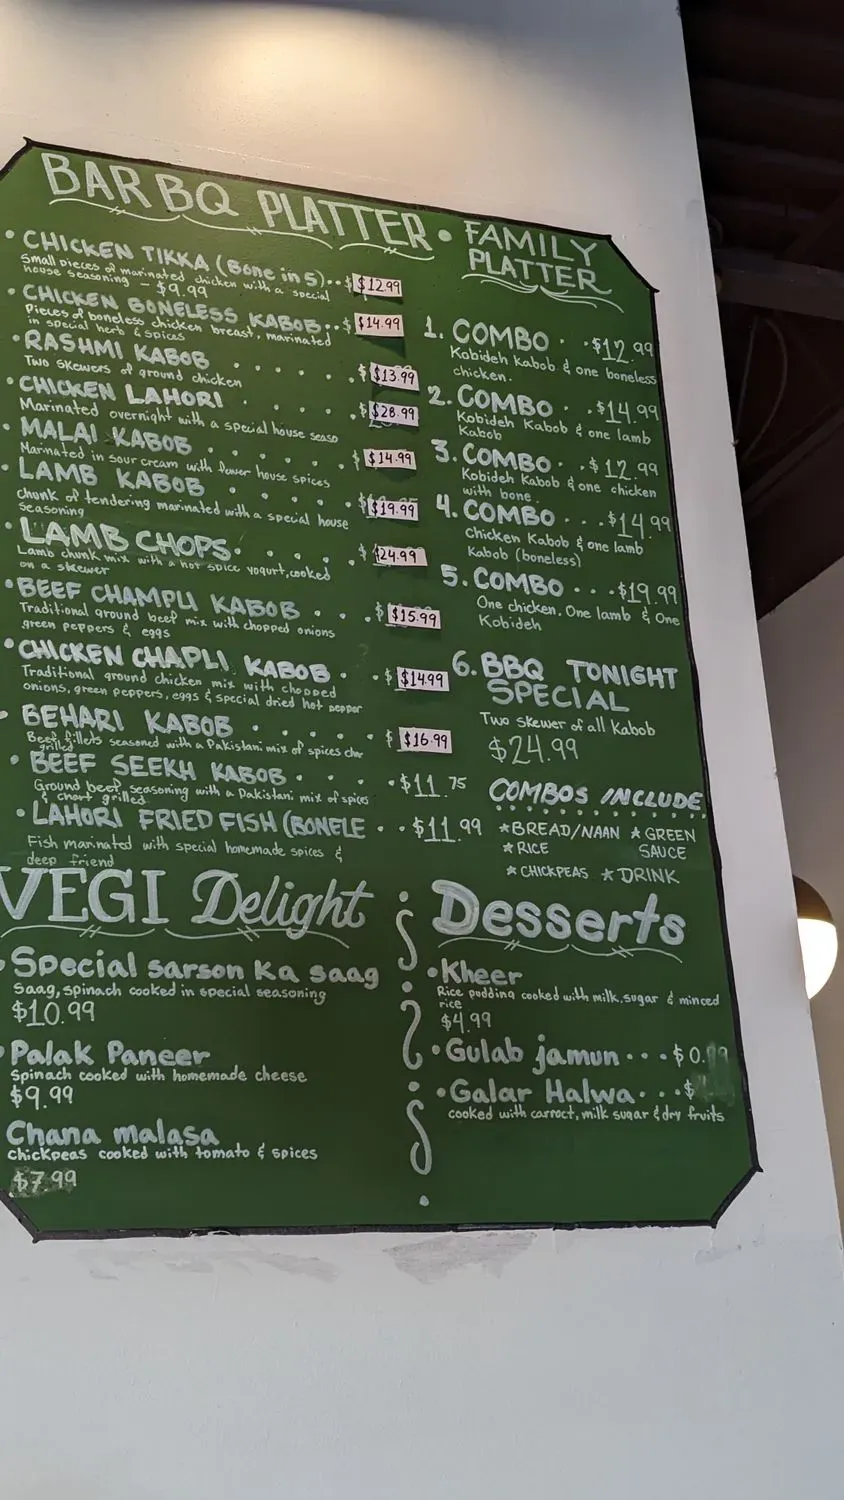 BAR BQ PLATTER
• CHICKEN TIKKA (Bone in 5)..$ $12.99
Small pieces of marinated chicken with a special
house seasoning - $9.99
• CHICKEN BONELESS KABOB..$ $14.99
Pieces of boneless chicken breast, marinated
in special herb & spices
• RASHMI KABOB . . . . . . $ $13.99
Two skewers of ground chicken
• CHICKEN LAHORI . . . . $ $28.99
Marinated overnight with a special house seaso
• MALAI KABOB . . . . . . $ $14.99
Marinated in sour cream with fewer house spices
• LAMB KABOB . . . . . $ $19.99
chunk of tendering marinated with a special house
seasoning
• LAMB CHOPS. . . . . $ $24.99
Lamb chunk mix with a hot spice yogurt, cooked
on a skewer
• BEEF CHAMPLI KABOB . . . $ $15.99
Traditional ground beef mix with chopped onions
green peppers & eggs
• CHICKEN CHAPLI KABOB . . $ $14.99
Traditional ground chicken mix with chopped
onions, green peppers, eggs & special dried hot pepper
- BEHARI KABOB . . . . . $ $16.99
Beef fillets seasoned with a Pakistani mix of spices char
grilled
• BEEF SEEKH KABOB . . . . $11.75
Ground beef, seasoning with a Pakistani mix of spices
& chart grilled
• LAHORI FRIED FISH (BONELE . . $11.99
Fish marinated with special homemade spices &
deep friend
• FAMILY
PLATTER
1. COMBO . . $12.99
Kobideh Kabob & one boneless
chicken.
2. COMBO . . $14.99
Kobideh Kabob & one lamb
Kabob
3. COMBO . . $12.99
Kobideh Kabob & one chicken
with bone.
4. COMBO . . . $14.99
chicken Kabob & one lamb
Kabob (boneless)
5. COMBO . . . $19.99
One chicken. One lamb & One
Kobideh
6. BBQ TONIGHT
SPECIAL
Two skewer of all Kabob
$24.99
COMBOS INCLUDE
★ BREAD/NAAN ★ GREEN
★ RICE SAUCE
★ CHICKPEAS ★ DRINK
VEGI Delight
• Special sarson ka saag
Saag, spinach cooked in special seasoning
$10.99
• Palak Paneer
Spinach cooked with homemade cheese
$9.99
Chana malasa
chickpeas cooked with tomato & spices
$7.99
Desserts
• Kheer
Rice pudding cooked with milk, sugar & minced
rice
$4.99
• Gulab jamun . . . $0.
• Galar Halwa . . . $
cooked with carroct, milk sugar & dry fruits